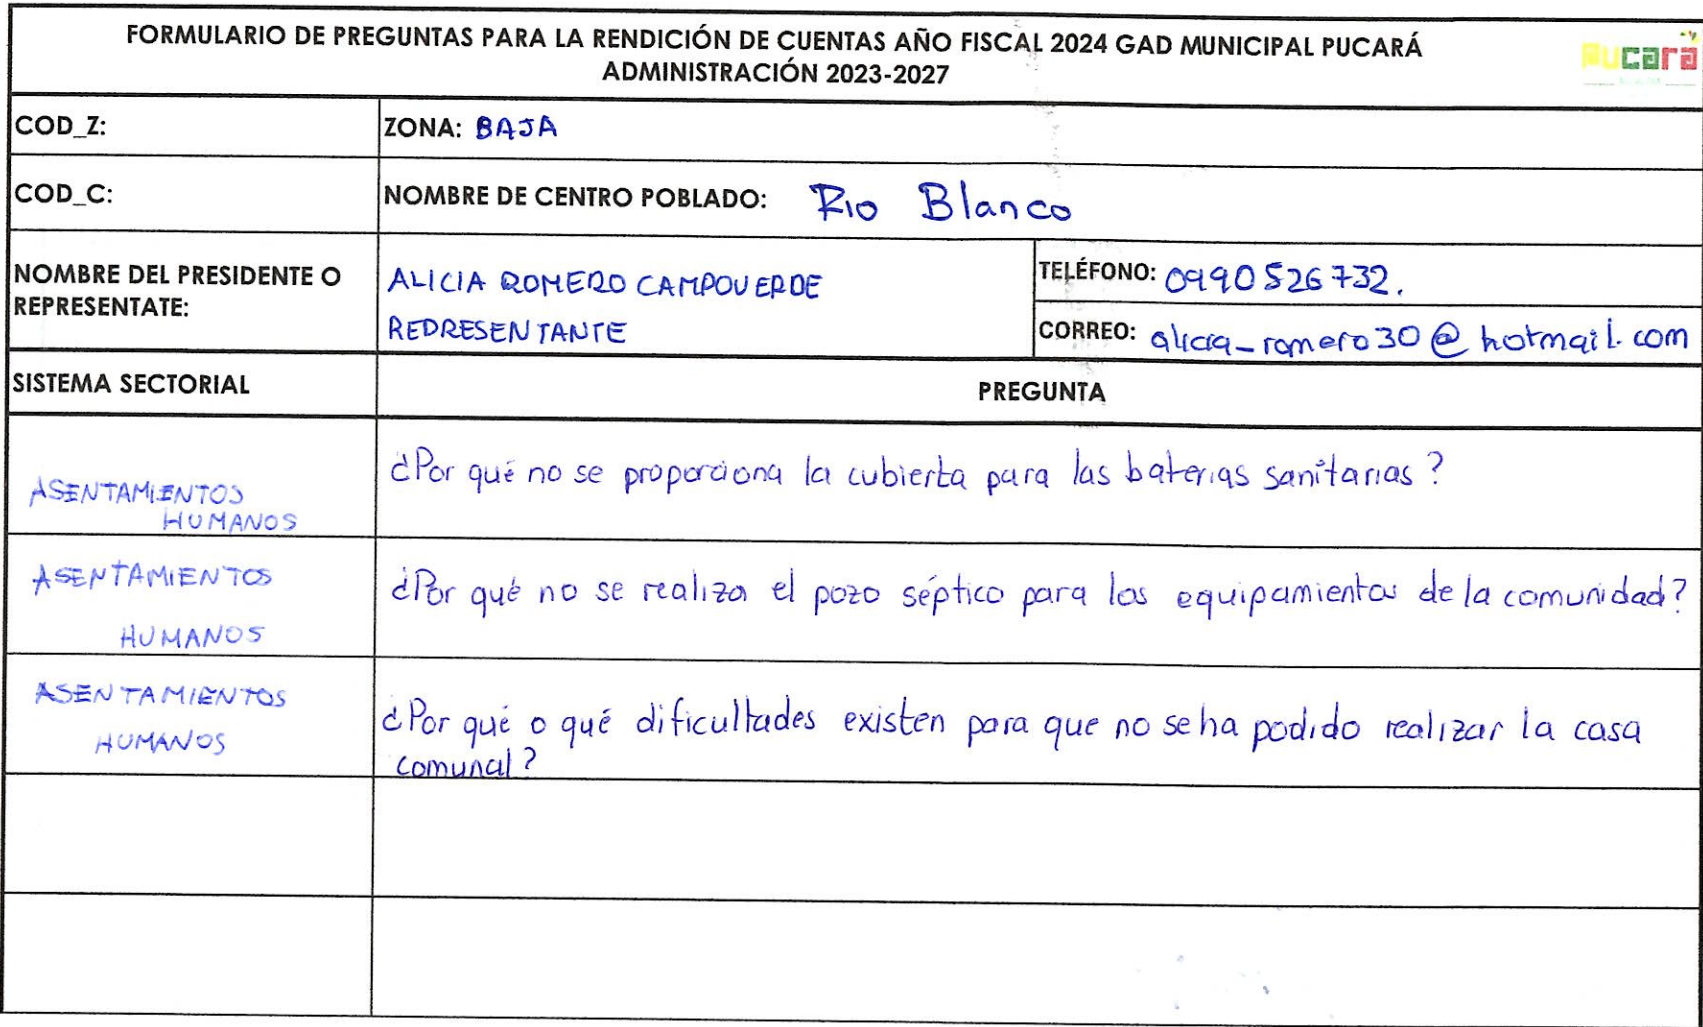 FORMULARIO DE PREGUNTAS PARA LA RENDICIÓN DE CUENTAS AÑO FISCAL 2024 GAD MUNICIPAL PUCARÁ
ADMINISTRACIÓN 2023-2027
Pucará
COD_Z:
ZONA: BAJA
COD_C:
NOMBRE DE CENTRO POBLADO: Rio Blanco
NOMBRE DEL PRESIDENTE O
REPRESENTATE:
ALICIA ROMERO CAMPOVERDE
REDRESENTANTE
TELÉFONO: 0990526732.
CORREO: alicia_romero30@hotmail.com
SISTEMA SECTORIAL
PREGUNTA
ASENTAMIENTOS
HUMANOS
¿Por qué no se proporciona la cubierta para las baterias sanitarias?
ASENTAMIENTOS
HUMANOS
¿Por qué no se realiza el pozo séptico para los equipamientos de la comunidad?
ASENTAMIENTOS
HUMANOS
¿Por qué o qué dificultades existen para que no se ha podido realizar la casa
comunal?